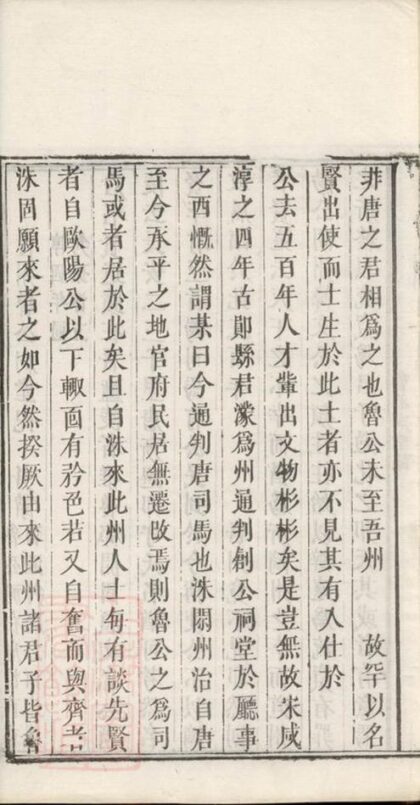 非唐之君相為之也魯公未至吾州　故罕以名
賢出使而士生於此土者亦不見其有入仕於
公去五百年人才輩出文物彬彬矣是豈無故朱咸
淳之四年古郧縣君濛為州通判創公祠堂於廳事
之西慨然謂某曰今通判唐司馬也洙閱州治自唐
至今承平之地官府民居無遷改焉則魯公之為司
馬或者居於此矣且自洙來此州人士每有談先賢
者自歐陽公以下輙面有矜色若又自奮而與齊者
洙固願來者之如今然揆厥由來此州諸君子皆魯